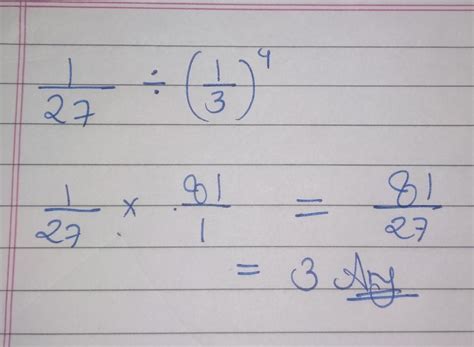 1/27 ÷ (1/3)^4
1/27 × 81/1 = 81/27
= 3 Ans